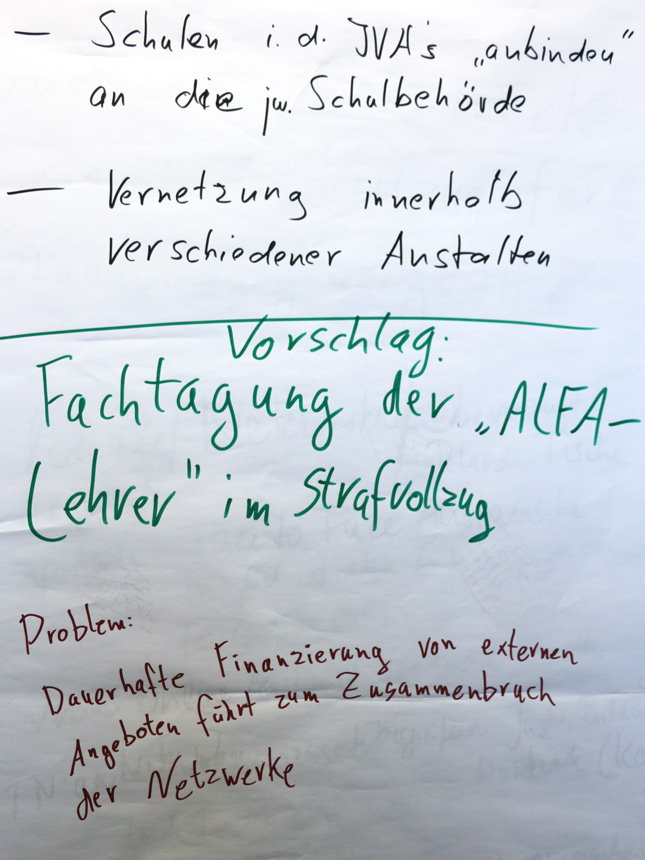 — Schulen i. d. JVA's „anbinden"
an die jw. Schulbehörde
— Vernetzung innerhalb
verschiedener Anstalten
Vorschlag:
Fachtagung der „ALFA-
Lehrer" im Strafvollzug
Problem:
Dauerhafte Finanzierung von externen
Angeboten führt zum Zusammenbruch
der Netzwerke